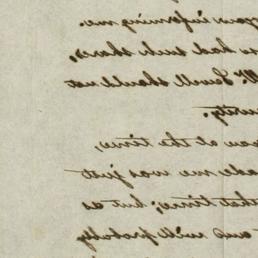 your informing me.
had such shares,
Mr. Sewell should not
urity.
you at the time,
ade me was just
that time; but as
and will probably